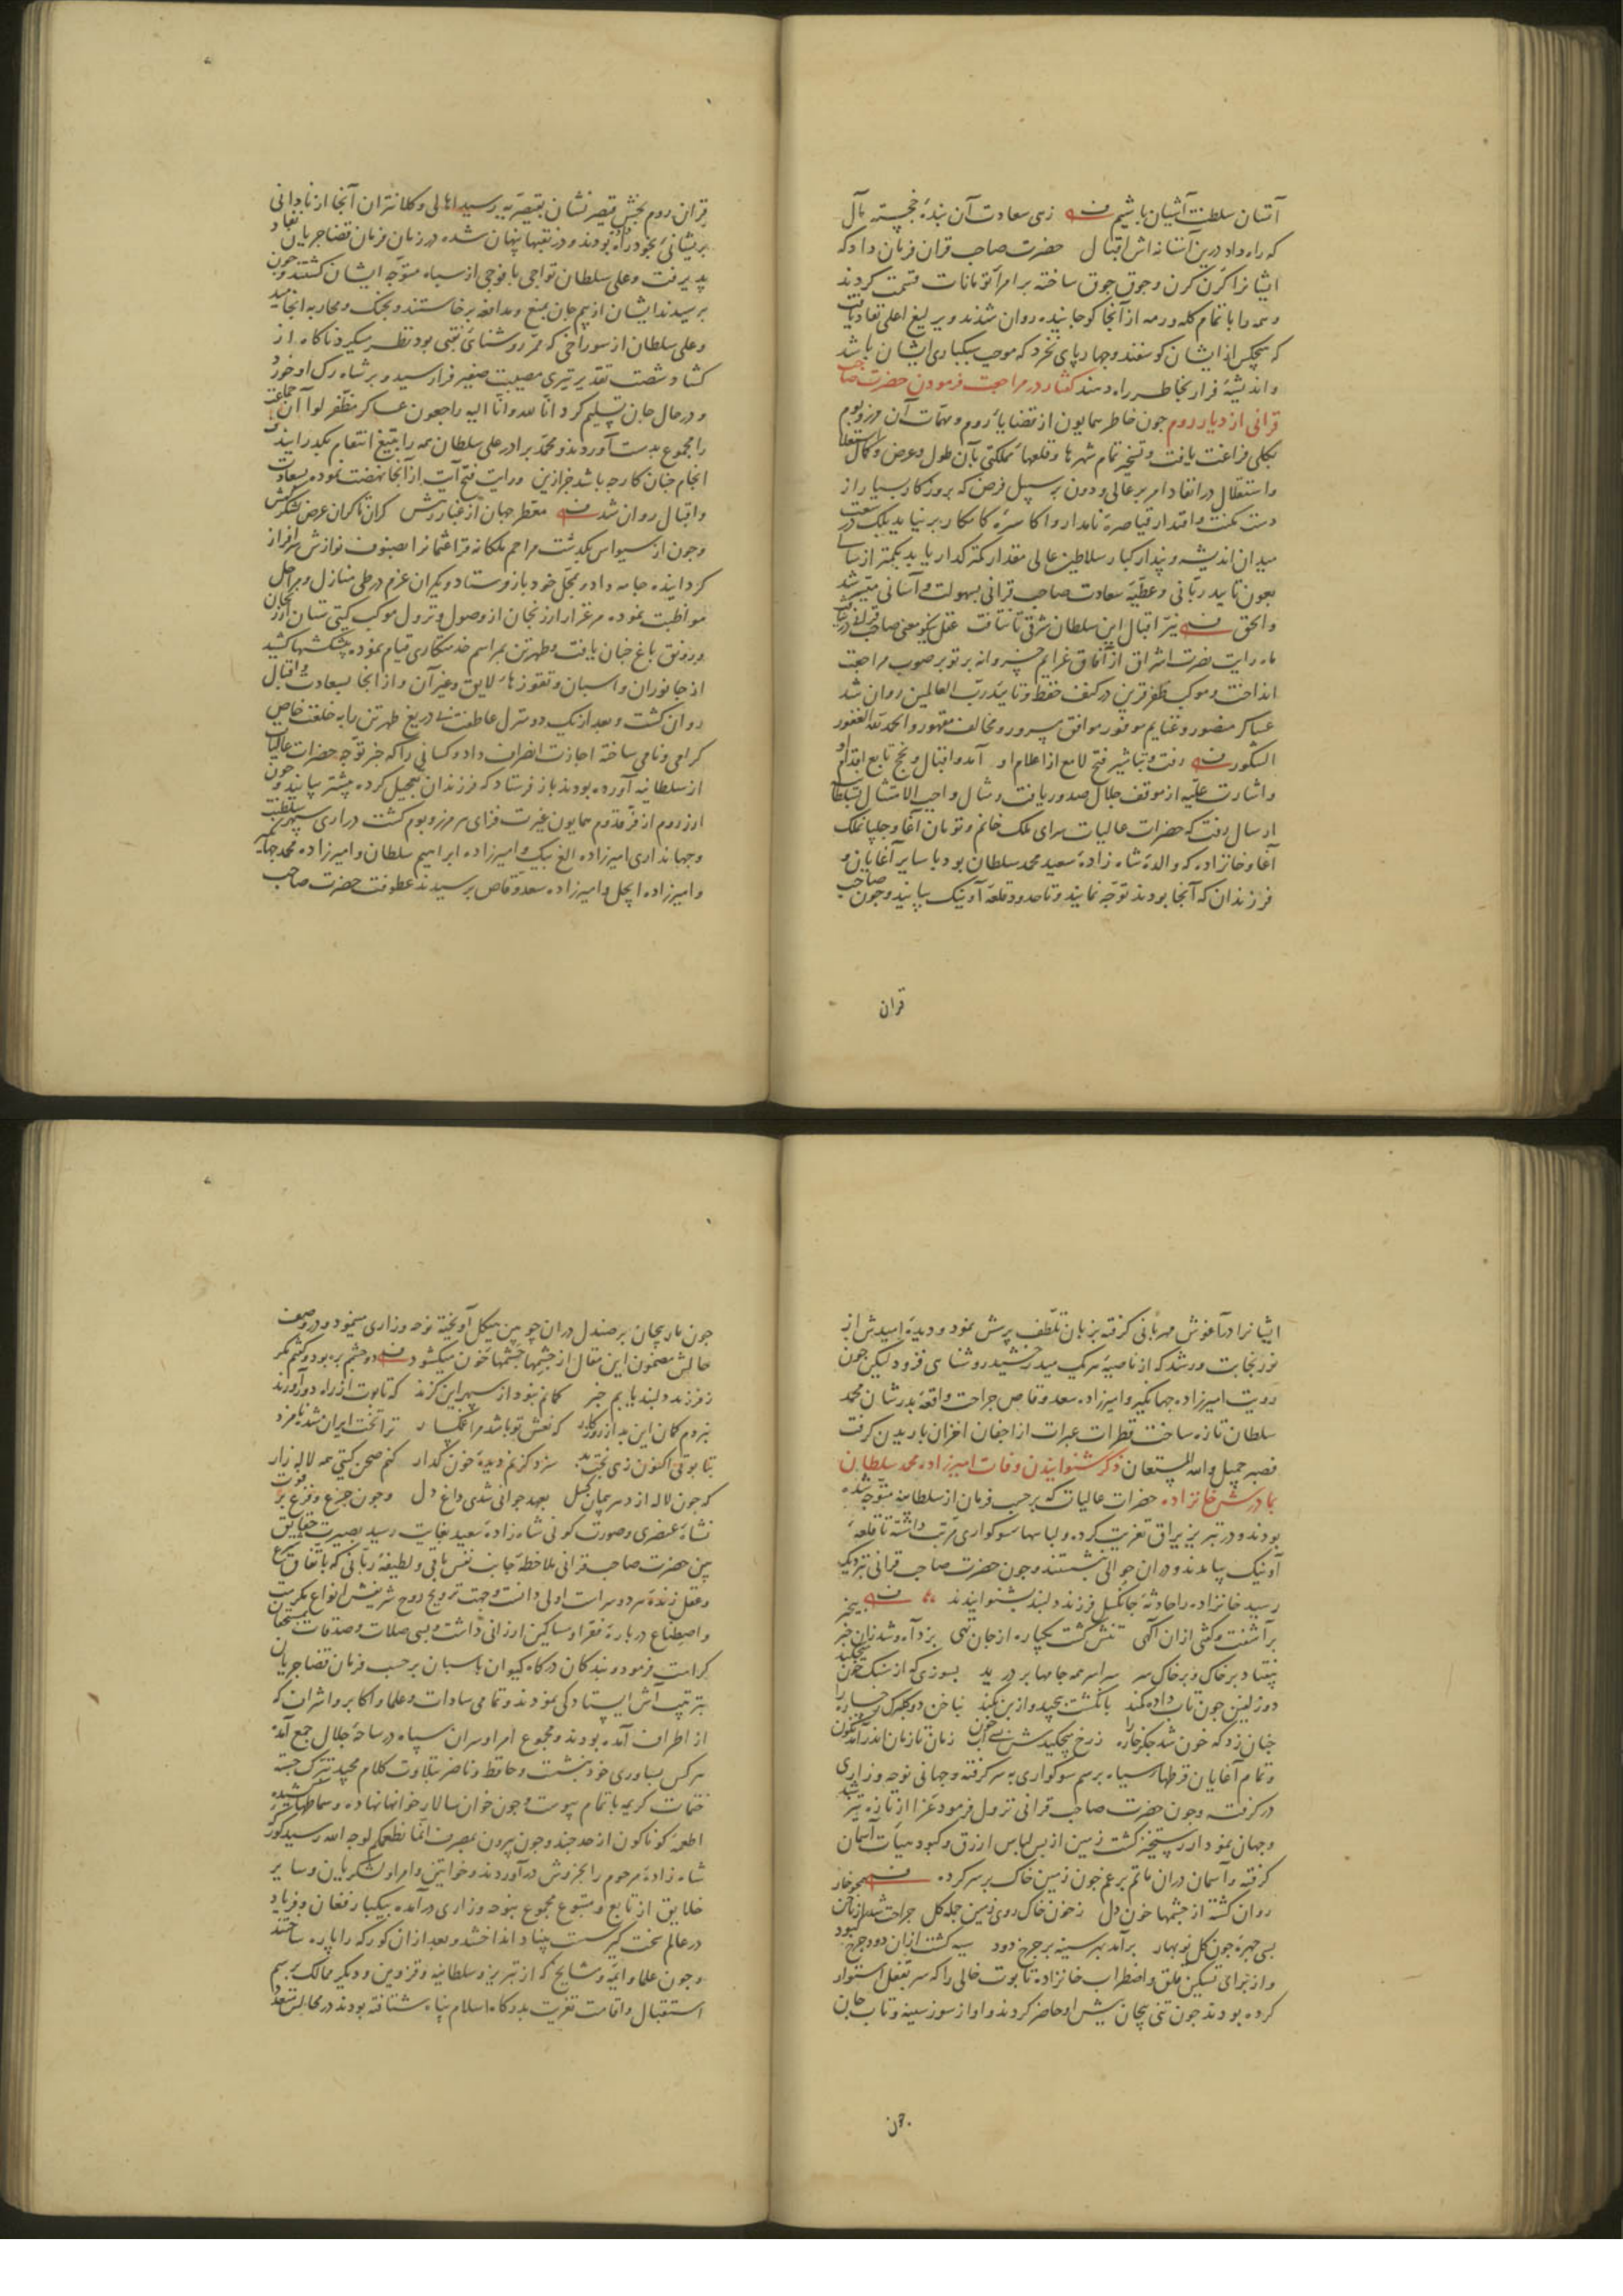 آشیان سلطنت آشیان باشیم زهی سعادت آن بندهٔ خجسته مآل
که راه داد درین آستانه اش اقبال حضرت صاحب قران فرمان داد که
ایشانرا کرن کرن و جوق جوق ساخته بر امرا تومانات قسمت کردند
و همه را با تمام کله و رمه از آنجا کوچانیده روان شدند و یرلیغ اعلی نفاذ یافت
که هیچکس از ایشان کوسفند و چهارپای نخرد که موجب سبکباری ایشان باشد
و اندیشهٔ فرار بخاطر راه دهند کفتار در مراجعت فرمودن حضرت صاحب
قرانی از دیار روم چون خاطر همایون از قضایاء روم و مهمات آن مرز و بوم
بکلی فراغت یافت و تسخیر تمام شهرها و قلعهاء مملکتی بآن طول و عرض و کمال استعلا
و استقلال در انفاد امر بر عالی و دون بر سبیل فرض که بروزکار بسیار از
دست مکنت و اقتدار قیاصرهٔ نامدار و اکاسرهٔ کامکار بر نیاید بلک در سعت
میدان اندیشه و پندار کبار سلاطین عالی مقدار کمتر کدار یابد بکمتر از سالی
بعون تایید ربانی و عطیهٔ سعادت صاحب قرانی بسهولت و آسانی میسر شد
والحق نیر اقبال این سلطان شرق تا نتافت عقل نیکو معنی صاحب قرانی در نیافت
ماه رایت نصرت اشراق از آفاق عزایم خسروانه پرتو بر صوب مراجعت
انداخت و موکب ظفر قرین در کنف حفظ و تایید رب العالمین روان شد
عساکر منصور و غنایم موفور موافق مسرور و مخالف مقهور والحمد لله الغفور
الشکور رفت و تباشیر فتح لامع از اعلام او آمد و اقبال و نجح تابع اقدام او
و اشارت علیه از موقف جلال صدور یافت و مثال واجب الامتثال بسلطانیه
ارسال رفت که حضرات عالیات سرای ملک خانم و تومان آغا و چلپان ملک
آغا و خانزاده که والدهٔ شاه زادهٔ سعید محمد سلطان بود با سایر آغایان و
فرزندان که آنجا بودند توجه نمایند و تا حدود قلعه آونیک بیایند و چون صاحب
قران
قران روم بخش قیصر نشان بقیصریه رسید اهالی و کلانتران آنجا از نادانی
پریشانی بخود راه بودند و در نقبها پنهان شده در زمان فرمان قضا جریان نفاد
پذیرفت و علی سلطان تواجی با فوجی از سپاه متوجه ایشان کشتند و چون
برسیدند ایشان از بیم جان بمنع و مدافعه برخاستند و بجنک و محاربه انجامید
و علی سلطان از سوراخی که ممر روشنائی نقبی بود نظر میکرد ناکاه از
کشاد شصت تقدیر تیری مصیبت صفیر فرا رسید و بر شاه رک او خورد
و در حال جان تسلیم کرد انا لله وانا الیه راجعون عساکر مظفر لوا آن جماعت
را مجموع بدست آوردند و محمد برادر علی سلطان همه را بتیغ انتقام بکدرانید
انجام چنان کار چه باشد جز ازین و رایت فتح آیت از آنجا نهضت نموده بسعادت
و اقبال روان شد معطر جهان از غبار رهش کران تا کران عرض لشکرکهش
و چون از سیواس بکدشت مراحم ملکانه قراعثمانرا بصنوف نوازش سرافراز
کردانیده جامه داد و بمحل خود باز فرستاد و یکران عزم در طی منازل و مراحل
مواظبت نموده مرغزار ارزنجان از وصول و نزول موکب کیتی ستان ارزنجان
و رونق باغ جنان یافت و طهرتن بمراسم خدمتکاری قیام نموده پیشکشها کشید
از جانوران و اسبان و تقوزهاء لایق و غیر آن و از آنجا بسعادت و اقبال
روان کشت و بعد از یک دو منزل عاطفت بی دریغ طهرتن را به خلعت خاص
کرامی و نامی ساخته اجازت انصراف داد و کسانی را که خبر توجه حضرات عالیات
از سلطانیه آورده بودند باز فرستاد که فرزندان تعجیل کرده پیشتر بیایند و چون
ارزروم از فر قدوم همایون غیرت فزای هر مرز و بوم کشت دراری سپهر سلطنت
و جهانداری امیرزاده الغ بیک و امیرزاده ابراهیم سلطان و امیرزاده محمد جهانکیر
و امیرزاده ایجل و امیرزاده سعد وقاص برسیدند عطوفت حضرت صاحب
ایشانرا در آغوش مهربانی کرفته بزبان تلطف پرسش نمود و دیدهٔ امیدش از
نور نجابت و رشد که از ناصیهٔ هر یک میدرخشید روشنای فزود لیکن چون
رویت امیرزاده جهانکیر و امیرزاده سعد وقاص جراحت واقعهٔ پدرشان محمد
سلطان تازه ساخت قطرات عبرات از اجفان احزان باریدن کرفت
فصبر جمیل والله المستعان ذکر شنوانیدن وفات امیرزاده محمد سلطان
بمادرش خانزاده حضرات عالیات که بر حسب فرمان از سلطانیه متوجه شده
بودند و در تبریز یراق تعزیت کرده و لباسها سوکواری مرتب داشته تا قلعه
آونیک بیامدند و دران حوالی نشستند و چون حضرت صاحب قرانی نزدیک
رسید خانزاده را حادثهٔ جانکسل فرزند دلبند بشنوانیدند بیخبر
برآشفت و کفتی ازان آکهی تنش کشت یکباره از جان تهی بزد آه و شد زان خبر
بیفتاد بر خاک و بر خاک سر سراسر همه جامها بر درید بسوزی که از سنک خون میچکید
دو زلفین چون تاب داده کمند بانکشت پیچید و از بن بکند بناخن دو کلبرک رخساره را
چنان زد که خون شد جکر خاره را ز رخ میچکیدش بسی خون آب زمان تا زمان اندر آمد نکون
و تمام آغایان قرطها سیاه برسم سوکواری به سر کرفته و جهانی نوحه و زاری
در کرفت و چون حضرت صاحب قرانی نزول فرمود عزا از تازه تیز شد
و جهان نمودار رستخیز کشت زمین از بس لباس ازرق و کبود هیات آسمان
کرفته و آسمان دران ماتم برغم چون زمین خاک بر سر کرده
روان کشته از چشمها خون دل ز خون خاک روی زمین جمله کل جراحت شد از ناخن
بسی چهرهٔ چون کل نوبهار برآمد بهر سینه بر چرخ دود سیه کشت ازان دود چرخ کبود
و از برای تسکین قلق و اضطراب خانزاده تابوت خالی را که سر بقفل استوار
کرده بودند چون تنی بیجان پیش او حاضر کردند و او از سوز سینه و تاب جان
چون
چون مار پیچان بر صندل دران چوبین هیکل آویخته نوحه و زاری مینمود و در وصف
حالش مضمون این مقال از چشمها چشمهای خون میکشود دو چشم بره بود و کفتم مکر
ز فرزند دلبند یابم خبر کمانم نبود از سپهر این کزند که تابوت از راه دور آورند
نبردم کمان این بد از روزکار که نعش تو باشد مرا غمکسار ترا تخت ایران شده نامزد
بتابوتی اکنون زهی بخت بد سزد کز نم دیدهٔ خون کدار کنم صحن کیتی همه لاله زار
که چون لاله از دهر پیمان کسل بعهد جوانی شدی داغ دل و چون جزع و فزع بر فوت
نشاهٔ عنصری و صورت کونی شاه زادهٔ سعید بغایت رسید بصیرت حقایق
بین حضرت صاحب قرانی ملاحظهٔ جانب نفس باقی و لطیفهٔ ربانی که باتفاق شرع
و عقل زندهٔ هر دو سراست اولی دانست و جهت ترویح روح شریفش انواع مکرمت
و اصطناع دربارهٔ فقرا و مساکین ارزانی داشت و بسی صلات و صدقات بمستحقان
کرامت فرمود و بندکان درکاه کیوان پاسبان بر حسب فرمان قضا جریان
بترتیب آش ایستادکی نمودند و تمامی سادات و علما و اکابر و اشراف که
از اطراف آمده بودند و مجموع امرا و سران سپاه در ساحهٔ جلال جمع آمده
هر کس بسادری خود بنشست و حافظ و ناظر بتلاوت کلام مجید تبرک جسته
ختمات کریمه باتمام پیوست و چون خوان سالار خوانها نهاده و سماطها کشیده
اطعمهٔ کوناکون از حد چند و چون بیرون بمصرف انما نطعمکم لوجه الله رسید کورکهٔ
شاه زادهٔ مرحوم را بخروش درآوردند و خواتین و امرا و لشکریان و سایر
خلایق از تابع و متبوع مجموع بنوحه و زاری درآمده بیکبار فغان و فریاد
در عالم سخت کیر سست بنیاد انداختند و بعد ازان کورکه را پاره ساختند
و چون علما و ائمه و مشایخ که از تبریز و سلطانیه و قزوین و دیکر ممالک برسم
استقبال و اقامت تعزیت بدرکاه اسلام پناه شتافته بودند در مجالس متعدد